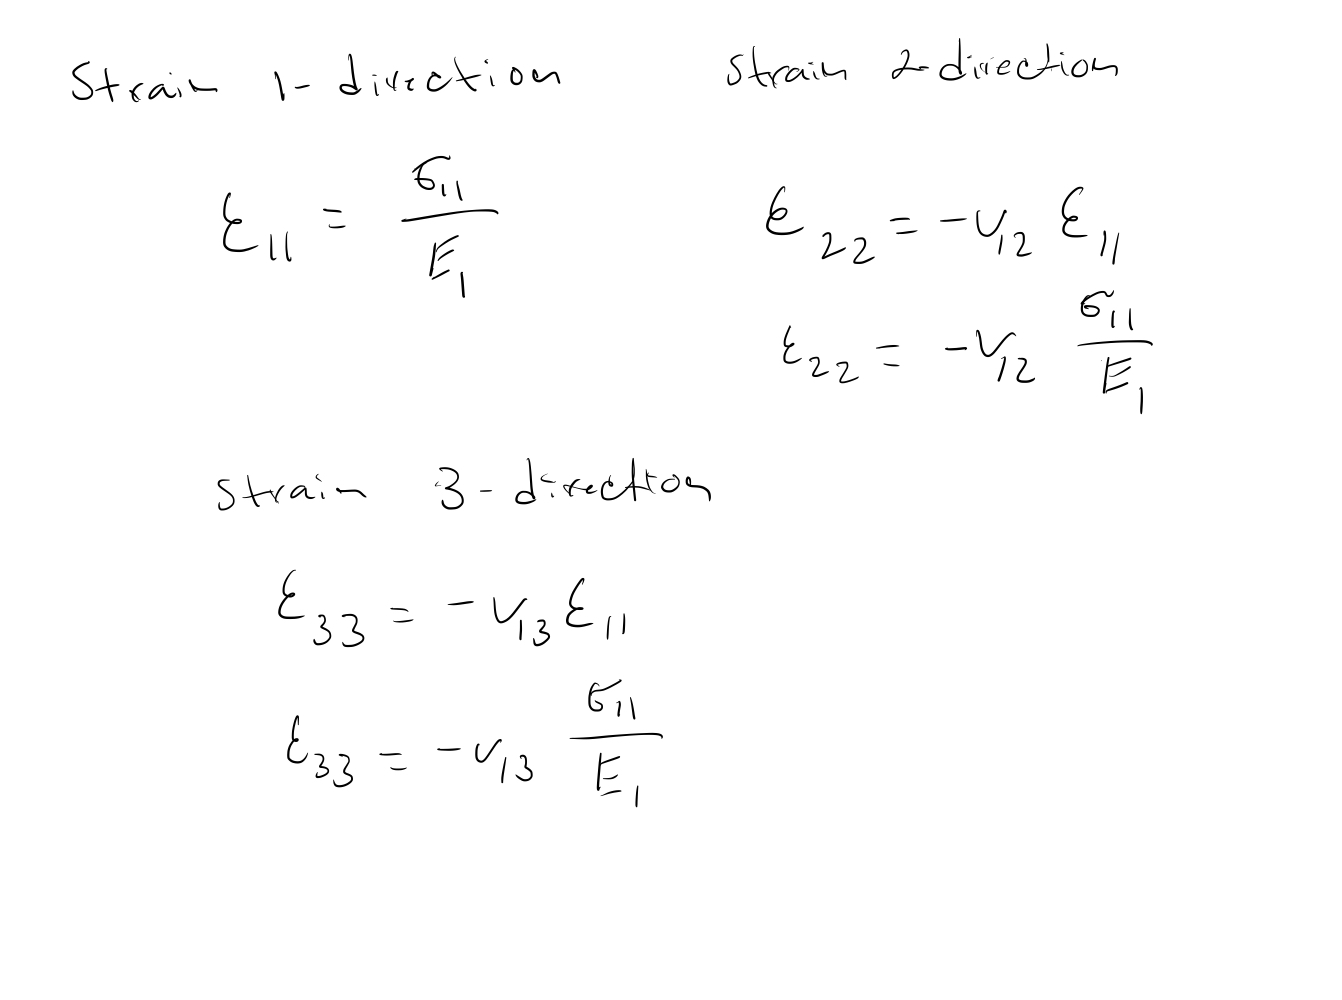 Strain 1-direction
ε₁₁ = σ₁₁ / E₁
Strain 2-direction
ε₂₂ = -ν₁₂ ε₁₁
ε₂₂ = -ν₁₂ σ₁₁ / E₁
Strain 3-direction
ε₃₃ = -ν₁₃ ε₁₁
ε₃₃ = -ν₁₃ σ₁₁ / E₁